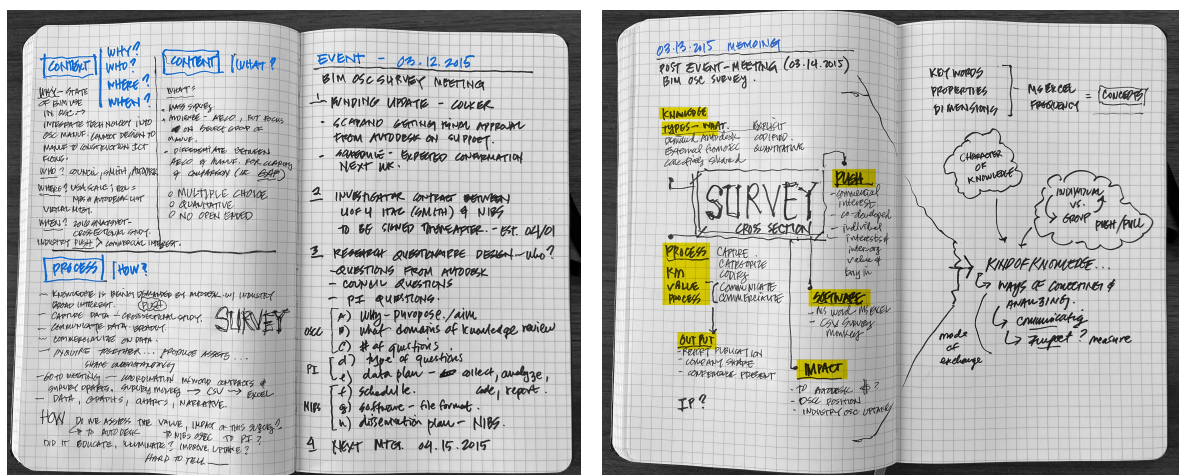 CONTEXT
WHY?
WHO?
WHERE?
WHEN?
WHY - STATE
OF BIM USE
IN OSC ->
INTEGRATE TECHNOLOGY INTO
OSC MANUF. CONNECT DESIGN TO
MANUF TO CONSTRUCTION ICT
FLOWS.
WHO? COUNCIL, SMITH, AUTODESK
WHERE? USA SCALE
VIRTUAL MTGS.
WHEN? 2015 SNAPSHOT -
CROSSECTIONAL STUDY.
INDUSTRY PUSH > COMMERCIAL INTEREST.
CONTENT
WHAT?
WHAT:
- MASS SURVEY
- AUDIENCE - AECO, BUT FOCUS
ON SELECT GROUP OF
MANUF.
- DIFFERENTIATE BETWEEN
AECO & MANUF. FOR CLARITY
& COMPARISON (IE GAP)
O MULTIPLE CHOICE
O QUANTITATIVE
O NO OPEN ENDED
PROCESS
HOW?
- KNOWLEDGE IS BEING DEMANDED BY AUTODESK W/ INDUSTRY
BROAD INTEREST. PUSH
- CAPTURE DATA - CROSSECTIONAL STUDY.
- COMMUNICATE DATA BROADLY
- COMMERCIALIZE ON DATA.
- INQUIRE TOGETHER... PRODUCE ASSETS...
SHARE UNDERSTANDING
SURVEY
- GO TO MEETING - COORDINATION MS WORD CONTRACTS &
SURVEY DRAFTS, SURVEY MONKEY -> CSV -> EXCEL
- DATA, GRAPHS, CHARTS, NARRATIVE.
HOW DO WE ASSESS THE VALUE, IMPACT OF THIS SURVEY?
TO AUTODESK TO NIBS OSCC TO PI?
DID IT EDUCATE, ILLUMINATE? IMPROVE UPTAKE?
HARD TO TELL
EVENT - 03.12.2015
BIM OSC SURVEY MEETING
1 FUNDING UPDATE - COLKER
- SCAPANO GETTING FINAL APPROVAL
FROM AUTODESK ON SUPPORT.
- SCHEDULE - EXPECTED CONFIRMATION
NEXT WK.
2 INVESTIGATOR CONTRACT BETWEEN
U OF U ITAC (SMITH) & NIBS
TO BE SIGNED THEREAFTER - EST. 04/01
3 RESEARCH QUESTIONAIRE DESIGN - WHO?
- QUESTIONS FROM AUTODESK
- COUNCIL QUESTIONS
- PI QUESTIONS.
OSCC
a) Why - purpose/aim
b) what domains of knowledge review
c) # of questions.
PI
d) type of questions
e) data plan - collect, analyze,
code, report.
NIBS
f) schedule.
g) software - file format.
h) dissemination plan - NIBS.
4 NEXT MTG. 04.15.2015
03.13.2015 MEMOING
POST EVENT-MEETING (03.14.2015)
BIM OSC SURVEY.
KNOWLEDGE
TYPES - WHAT.
Demand Autodesk
External from OSCC
collectively shared
EXPLICIT
CODIFIED
QUANTITATIVE
SURVEY
CROSS SECTION
PUSH
- commercial
interest
- co-developed
- individual
interests &
value &
buy in
PROCESS
KM
VALUE
PROCESS
CAPTURE
CATEGORIZE
CODIFY
COMMUNICATE
COMMERCIALIZE
SOFTWARE
- MS WORD MS EXCEL
- CSV SURVEY
MONKEY
OUTPUT
- REPORT PUBLICATION
- COMPANY SHARE
- CONFERENCE PRESENT
IMPACT
- TO AUTODESK $?
- OSCC POSITION
- INDUSTRY OSC UPTAKE
IP?
KEY WORDS
PROPERTIES
DIMENSIONS
- MS EXCEL
FREQUENCY
= CONCEPTS
CHARACTER
OF
KNOWLEDGE
INDIVIDUAL
VS.
GROUP
PUSH/PULL
KIND OF KNOWLEDGE...
WAYS OF COLLECTING &
ANALYZING.
communicating
Impact? measure
mode of
exchange